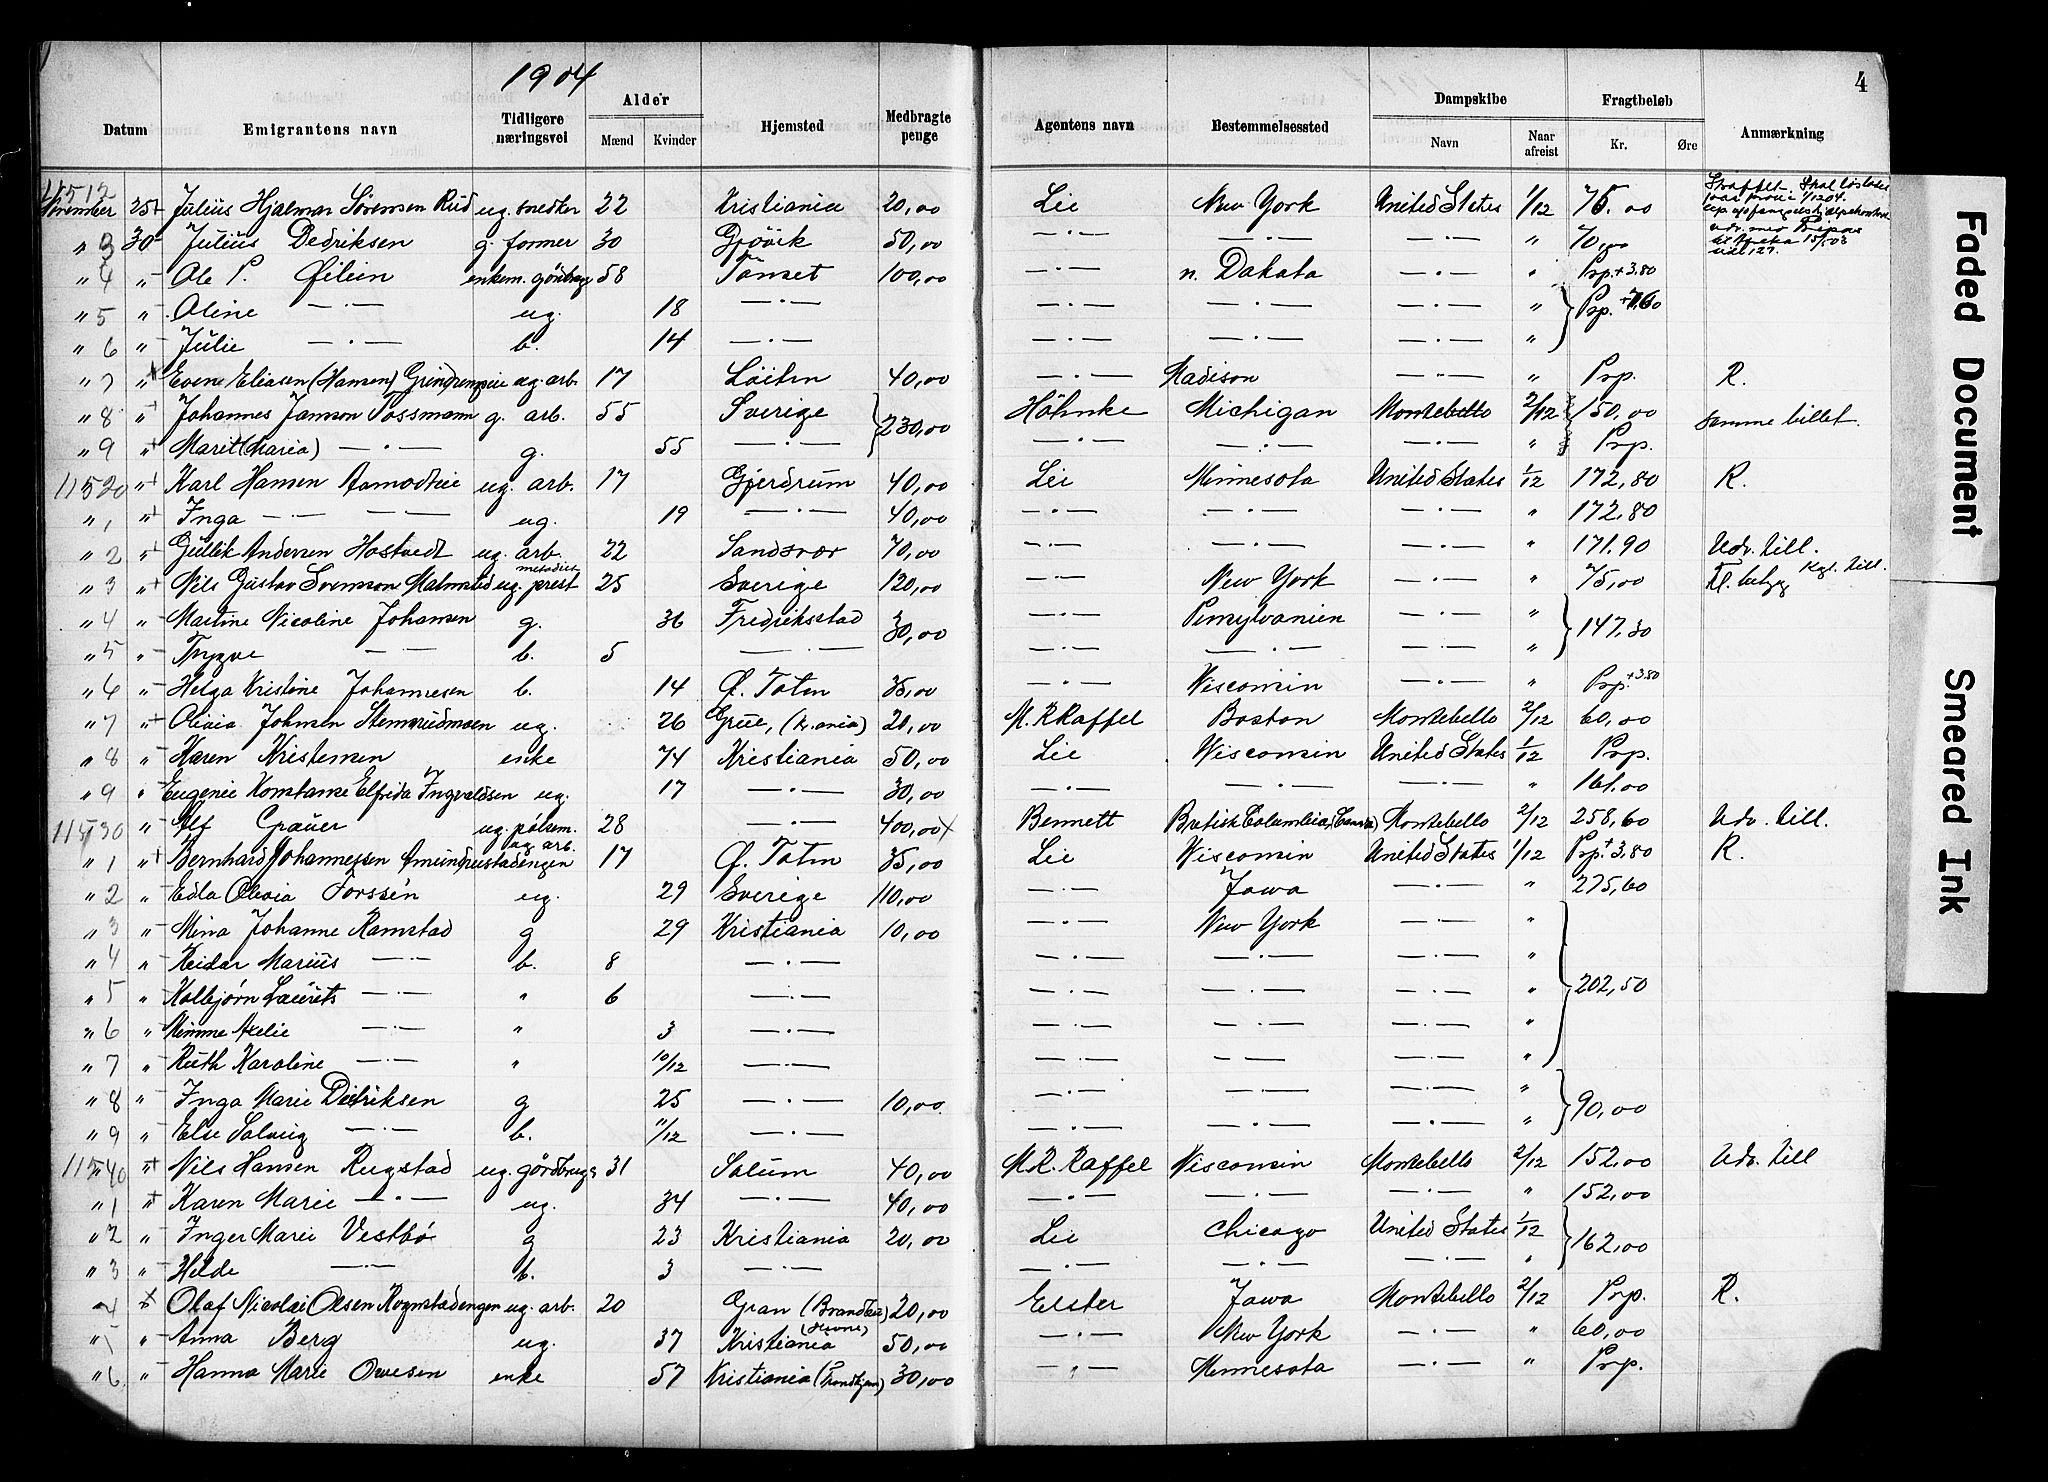 1904
4
Datum | Emigrantens navn | Tidligere næringsvei | Alder Mænd | Kvinder | Hjemsted | Medbragte penge | Agentens navn | Bestemmelsessted | Dampskibe Navn | Naar afreist | Fragtbeløb Kr. | Øre | Anmærkning
11512 November 25 + Julius Hjalmar Sörensen Rud | ug. snedker | 22 | Kristiania | 20,00 | Lie | New York | United States | 1/12 | 75.00 | Straffet. Skal løslades
" 3 30 - Julius Dedriksen | g. former | 30 | Gjövik | 50,00 | — · — | — · — | — · — | " | 70,00
" 4 " - Ole P. Öilien | enkem. gårdbrug | 58 | Tönset | 100,00 | — · — | n. Dakota | — · — | " | Prp. + 3.80
" 5 " - Oline — · — | ug. | 18 | — · — | — · — | — · — | — · — | " | Prp. + 7.60
" 6 " - Julie — · — | b. | 14 | — · — | "
" 7 " + Evene Eliasen (Hansen) | ug. arb. | 17 | Löiten | 40,00 | — · — | Madison | — · — | " | Prp. | R.
" 8 " + Johannes Janson Tossmann | g. arb. | 55 | Sverige | 230,00 | Höhnke | Michigan | Montebello | 2/12 | 150,00 | samme billet.
" 9 " + Marit (Maria) — · — | g. | 55 | — · — | — · — | — · — | — · — | " | Prp.
11520 " + Karl Hansen Aamodteie | ug. arb. | 17 | Gjerdrum | 40,00 | Lie | Minnesota | United States | 1/12 | 172,80 | R.
" 1 " + Inga — · — — | ug. | 19 | — · — | 40,00 | — · — | — · — | — · — | " | 172.80
" 2 " + Gullik Andersen Hostvedt | ug. arb. | 22 | Sandsvær | 70,00 | — · — | — · — | — · — | " | 171.90 | Udv. till.
" 3 " + Nils Gustav Svensson Malmsted | ug. metodist prest | 25 | Sverige | 120,00 | — · — | New York | — · — | " | 75,00 | Fl. betyg Kgl. till.
" 4 " - Martine Nicoline Johansen | g. | 36 | Fredriksstad | 30,00 | — · — | Pensylvanien | — · — | " | 147,30
" 5 " - Trygve — · — | b. | 5 | — · — | — · — | — · — | — · — | "
" 6 " - Helga Kristine Johannesen | b. | 14 | Ø. Toten | 35,00 | — · — | Wisconsin | — · — | " | Prp. + 3.80
" 7 " + Olivia Johnsen Stemsrudmoen | ug. | 26 | Grue, (Kr.ania) | 20,00 | M. R Raffel | Boston | Montebello | 2/12 | 60,00
" 8 " - Karen Kristensen | enke | 74 | Kristiania | 50,00 | Lie | Wisconsin | United States | 1/12 | Prp.
" 9 " Eugenie Konstanse Elfrida Ingvaldsen | ug. | 17 | — · — | 30,00 | — · — | — · — | — · — | " | 161.00
11530 " - Alf Grauer | ug. pölsem. | 28 | — · — | 400,00 | Bennett | Britisk Columbia, (Canada) | Montebello | 2/12 | 258,60 | Udv. till.
" 1 " + Bernhard Johannessen Amundrustadengen | ug. arb. | 17 | Ø. Toten | 35,00 | Lie | Wisconsin | United States | 1/12 | Prp. + 3.80 | R.
" 2 " - Edla Olivia Forssén | ug. | 29 | Sverige | 110,00 | — · — | Jowa | — · — | " | 275,60
" 3 " - Mina Johanne Ramstad | g | 29 | Kristiania | 10,00 | — · — | New York | — · — | " | 202,50
" 4 " - Reidar Marius — · — | b. | 8 | — · — | — · — | — · — | — · — | "
" 5 " - Kolbjørn Laurits — · — | " | 6 | — · — | — · — | — · — | — · — | "
" 6 " - Mimme Axelie — · — | " | 3 | — · — | — · — | — · — | — · — | "
" 7 " - Ruth Karoline — · — | " | 10/12 | — · — | — · — | — · — | — · — | "
" 8 " - Inga Marie Didriksen | g | 25 | — · — | 10,00 | — · — | — · — | — · — | " | 90,00
" 9 " - Else Solveig — · — | b. | 11/12 | — · — | — · — | — · — | — · — | "
11540 " + Nils Hansen Rugstad | ug. gördbruger | 31 | Solum | 40,00 | M. R. Raffel | Wisconsin | Montebello | 2/12 | 152,00 | Udv. till
" 1 " + Karen Marie — · — | ug. | 34 | — · — | 40,00 | — · — | — · — | — · — | " | 152,00
" 2 " - Inger Marie Vestbö | g | 23 | Kristiania | 20,00 | Lie | Chicago | United States | 1/12 | 162,00
" 3 " - Helde — · — | b. | 3 | — · — | — · — | — · — | "
4 Olaf Nicolai Olsen Rognstadengen | ug. arb. | 20 | Gran (Brandbu) | 20,00 | Elster | Jowa | Montebello | 2/12 | Prp. | R.
" 5 " - Anna Berg | ug. | 37 | Kristiania (Hevne) | 50,00 | — · — | New York | — · — | " | 60,00
" 6 " - Hanna Marie Ovesen | enke | 57 | Kristiania (Trondhjem) | 30,00 | " | Minnesota | — · — | " | Prp.
Faded Document
Smeared Ink